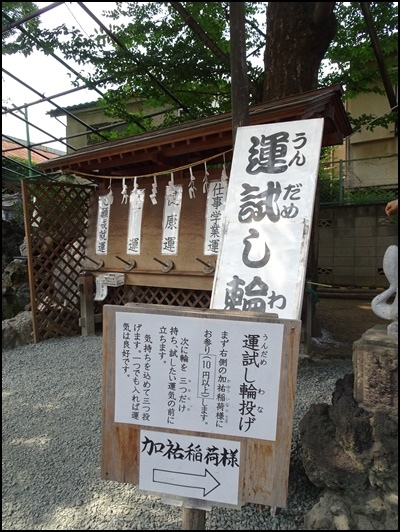 心願成就運
運
健康運
仕事学業運
運試し輪
うんだめ
わ
運試し輪投げ
うんだめ
わな
まず右側の加祐稲荷様に
お参り(10円以上)します。
次に輪を三つだけ
持ち、試したい運気の前に
立ちます。
気持ちを込めて三つ投
げます。一つでも入れば運
気は良好です。
加祐稲荷様